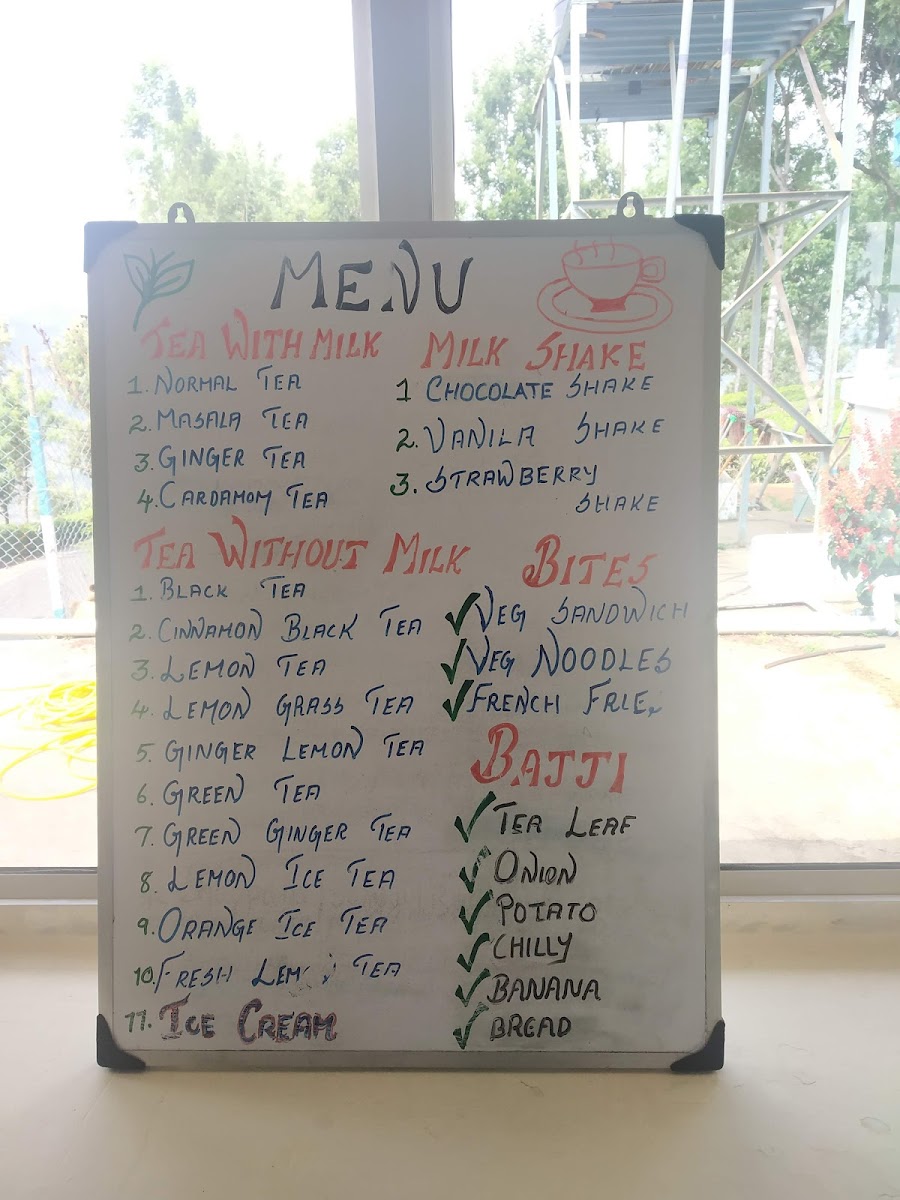 MENU
TEA WITH MILK
1. NORMAL TEA
2. MASALA TEA
3. GINGER TEA
4. CARDAMOM TEA
TEA WITHOUT MILK
1. BLACK TEA
2. CINNAMON BLACK TEA
3. LEMON TEA
4. LEMON GRASS TEA
5. GINGER LEMON TEA
6. GREEN TEA
7. GREEN GINGER TEA
8. LEMON ICE TEA
9. ORANGE ICE TEA
10. FRESH TEA
11. ICE CREAM
MILK SHAKE
1 CHOCOLATE SHAKE
2. VANILA SHAKE
3. STRAWBERRY
SHAKE
BITES
✓ VEG SANDWICH
✓ VEG NOODLES
✓ FRENCH FRIES
BAJJI
✓ TEA LEAF
✓ ONION
✓ POTATO
✓ CHILLY
✓ BANANA
✓ BREAD